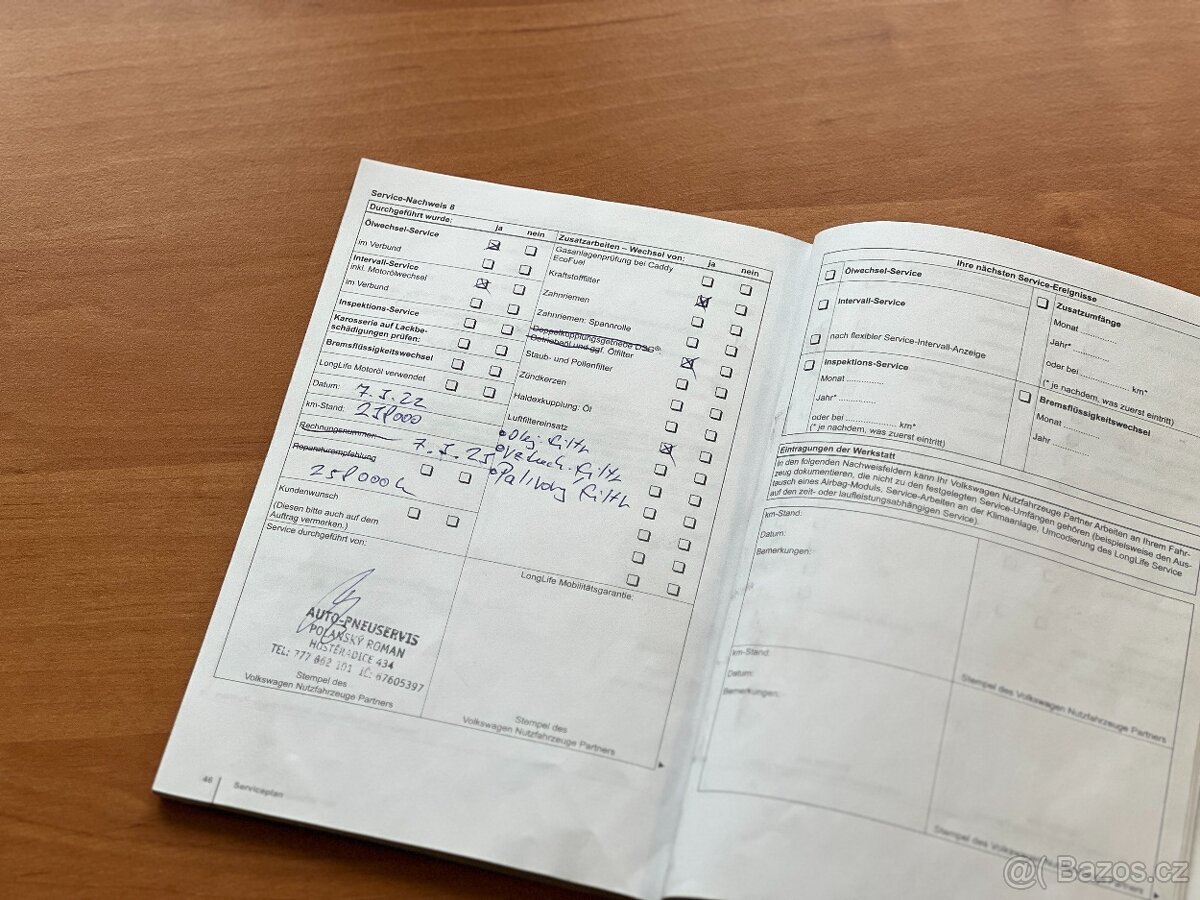 Service-Nachweis 8
Durchgeführt wurde:
ja
nein
Ölwechsel-Service
im Verbund
Intervall-Service
inkl. Motorölwechsel
im Verbund
Inspektions-Service
Karosserie auf Lackbe-
schädigungen prüfen:
Bremsflüssigkeitswechsel
LongLife Motoröl verwendet
Datum:
7. 5. 22
km-Stand:
Rechnungsnummer
7. 5. 25
Reparaturempfehlung
Kundenwunsch
(Diesen bitte auch auf dem
Auftrag vermerken.)
Service durchgeführt von:
AUTO-PNEUSERVIS
POLANSKÝ ROMAN
HOSTĚRADICE 434
TEL: 777 862 101 IČ: 67605397
Stempel des
Volkswagen Nutzfahrzeuge Partners
Zusatzarbeiten – Wechsel von:
ja
nein
Gasanlagenprüfung bei Caddy
EcoFuel
Kraftstofffilter
Zahnriemen
Zahnriemen: Spannrolle
Doppelkupplungsgetriebe DSG®:
Getriebeöl und ggf. Ölfilter
Staub- und Pollenfilter
Zündkerzen
Haldexkupplung: Öl
Luftfiltereinsatz
Olej. filtr
Vzduch. filtr
Palivový filtr
LongLife Mobilitätsgarantie:
Stempel des
Volkswagen Nutzfahrzeuge Partners
46
Serviceplan
Ihre nächsten Service-Ereignisse
Ölwechsel-Service
Intervall-Service
nach flexibler Service-Intervall-Anzeige
Inspektions-Service
Monat ..............
Jahr* ..............
oder bei .............. km*
(* je nachdem, was zuerst eintritt)
Zusatzumfänge
Monat ..............
Jahr* ..............
oder bei .............. km*
(* je nachdem, was zuerst eintritt)
Bremsflüssigkeitswechsel
Monat ..............
Jahr ..............
Eintragungen der Werkstatt
In den folgenden Nachweisfeldern kann Ihr Volkswagen Nutzfahrzeuge Partner Arbeiten an Ihrem Fahr-
zeug dokumentieren, die nicht zu den festgelegten Service-Umfängen gehören (beispielsweise den Aus-
tausch eines Airbag-Moduls, Service-Arbeiten an der Klimaanlage, Umcodierung des LongLife Service
auf den zeit- oder laufleistungsabhängigen Service).
km-Stand:
Datum:
Bemerkungen:
Stempel des Volkswagen Nutzfahrzeuge Partners
km-Stand:
Datum:
Bemerkungen:
Stempel des Volkswagen Nutzfahrzeuge Partners
Bazos.cz